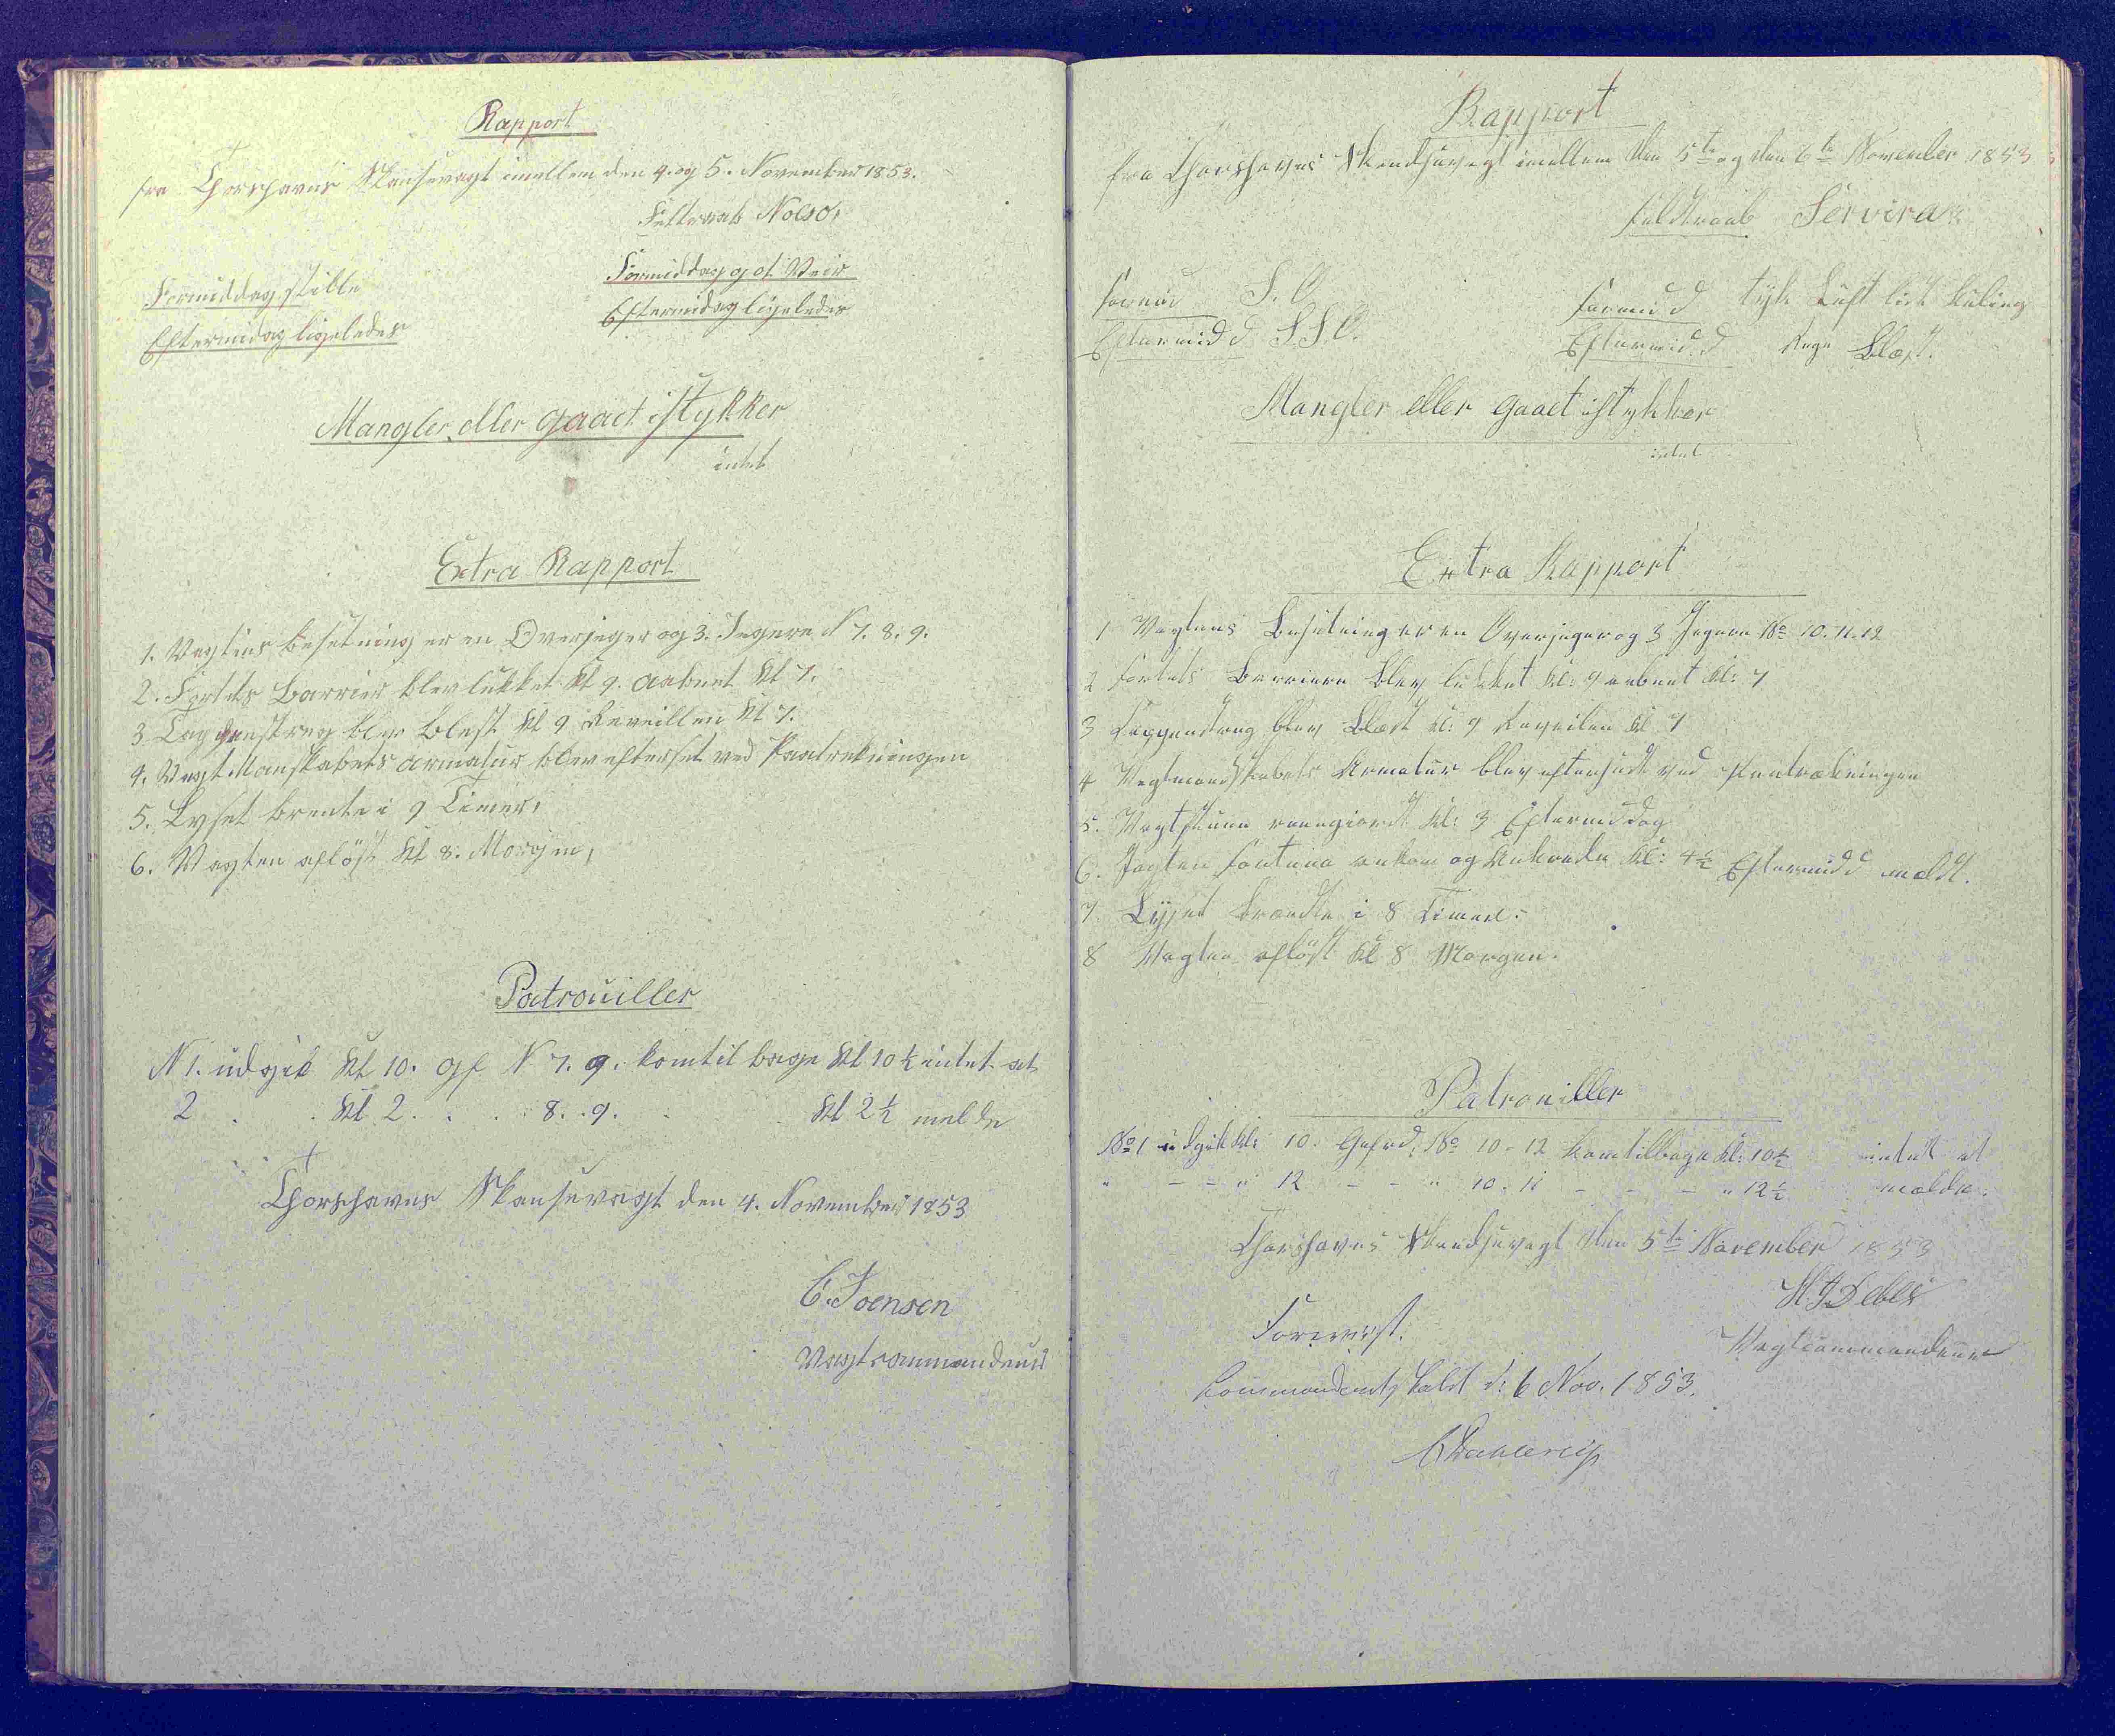 Rapport
fra Thorshavns Skansevagt imellem den 4. og 5. November 1853.
Feltraab Nolsö,
Formiddag got Veir
Formiddag stille
Eftermidag ligeledes
Eftermidag ligeledes
Mangler eller gaaet istykker
intet
Extra Rapport
1. Vagtens besetning er en Overjeger og 3. Jegere N 7. 8. 9.
2. Fortets Barrier blev lukket Kl 9. aabnet Kl 7.
3. Tappenstreg blev blest Kl 9 Reveillen Kl 7.
4. Vagt Manskabets armatur blev efterset ved Paatrekningen
5. Lyset brente i 9 Timer,
6. Vagten aflöst Kl 8. Morgen,
Patrouiller
N 1. udgik Kl 10. gf. N 7. 9. kom tilbage Kl 10½ intet at
2 . . Kl 2. . . 8. 9. . . Kl 2½ melde
Thorshavns Skansevagt den 4. November 1853
C. Joensen
Vagtcommandeur
Rapport
fra Thorshavns Skandsevagt imellem den 5te og den 6te November 1853
Feldtraab Servira
Formid S. O
Formidd tyk Luft lidt Kuling
Eftermidd S S O.
Eftermidd. Regn Blæst.
Mangler eller gaaet istykker
intet
Extra Rapport
1 Vagtens Besetning er en Overjeger og 3 Jegere No 10. 11. 12
2 Fortets Barriere blev lukket Kl: 9 aabnet Kl: 7
3 Tappenstreg blev Blæst Kl: 9 Reveilen Kl 7
4 Vagtmandskabets Armatur blev efterseet ved Paatrækningen
5. Vagtstuen reengiordt Kl: 3 Eftermiddag
6. Jagten Fortuna ankom og Ankrede Kl: 4½ Eftermidd meldt.
7. Lyset brændte i 8 Timer.
8 Vagten aflöst Kl 8 Morgen.
Patrouiller
No 1 udgik Kl: 10. Gefrd: No 10 - 12 kom tilbage Kl: 10½ intet at
" - - " 12 - - " 10 - 11 - - - " 12½ mælde.
Thorshavns Skandsevagt den 5te November 1853
H. J. Debes
Vagtcommandeur
Forevist.
Kommandantskabet d: 6 Nov. 1853.
CDahlerup